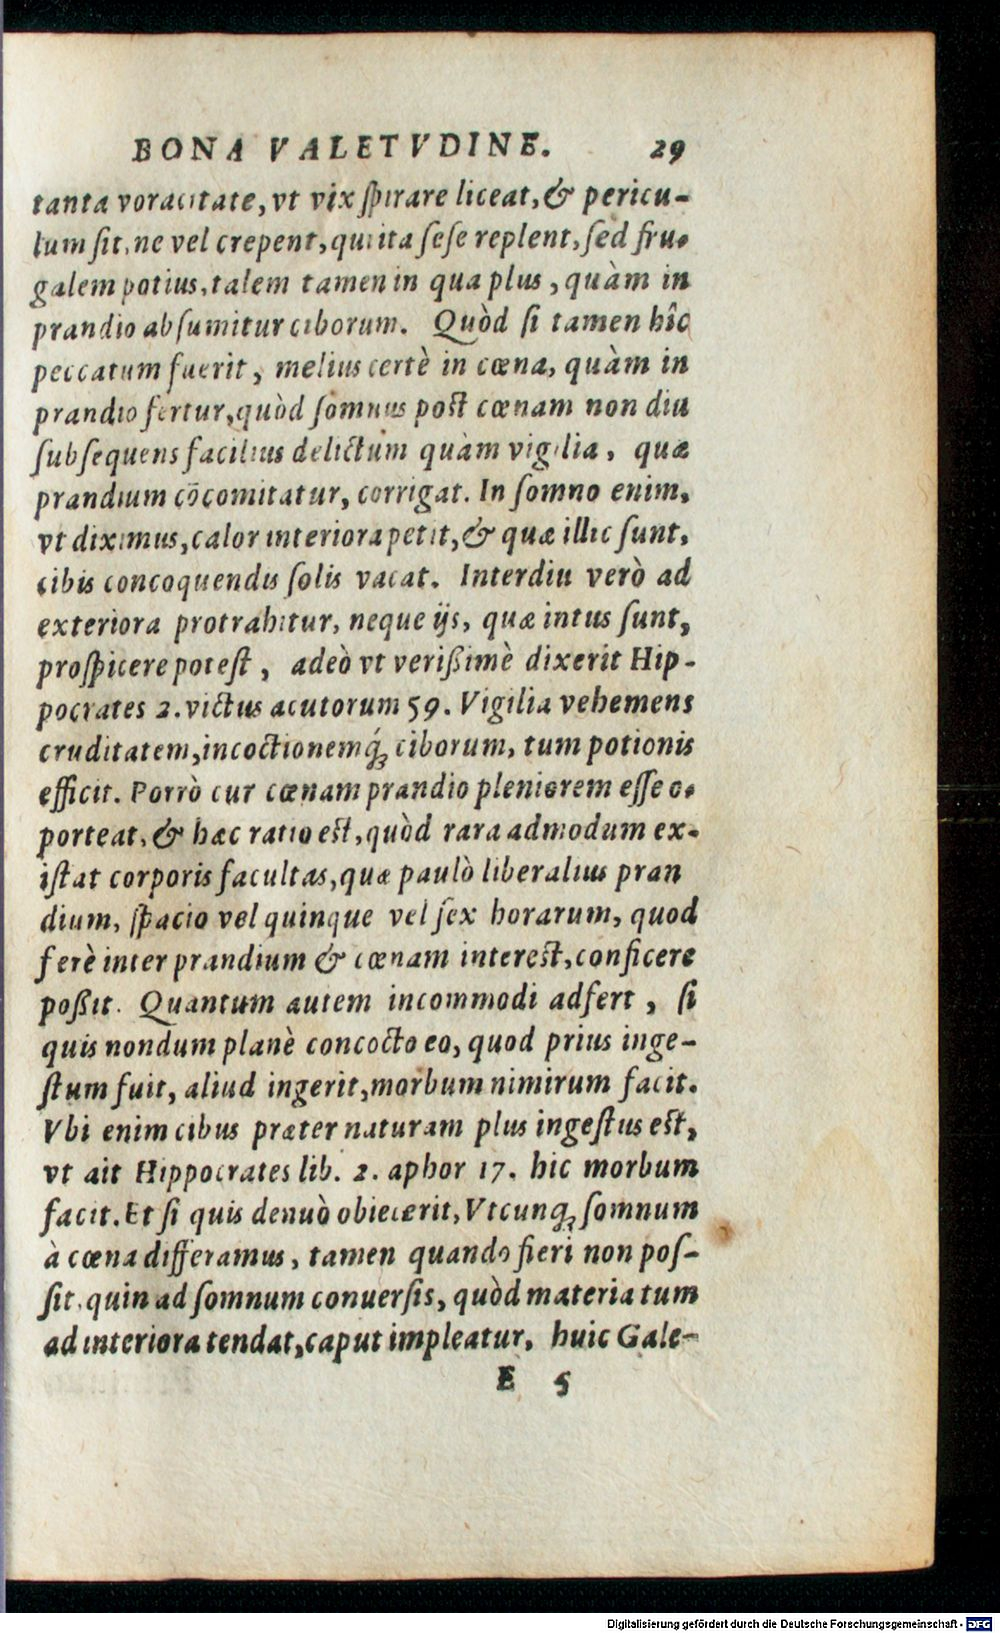 BONA VALETVDINE. 29
tanta voracitate, vt vix ſpirare liceat, & pericu-
lum ſit, ne vel crepent, qui ita ſeſe replent, ſed fru-
galem potius, talem tamen in qua plus, quàm in
prandio abſumitur ciborum. Quòd ſi tamen hîc
peccatum fuerit, melius certè in cœna, quàm in
prandio fertur, quòd ſomnus poſt cœnam non diu
ſubſequens facilius delictum quàm vigilia, quæ
prandium cōcomitatur, corrigat. In ſomno enim,
vt diximus, calor interiora petit, & quæ illic ſunt,
cibis concoquendis ſolis vacat. Interdiu verò ad
exteriora protrahitur, neque ijs, quæ intus ſunt,
proſpicere poteſt, adeò vt verißimè dixerit Hip-
pocrates 2. victus acutorum 59. Vigilia vehemens
cruditatem, incoctionemq́; ciborum, tum potionis
efficit. Porrò cur cœnam prandio pleniorem eſſe o-
porteat, & hæc ratio eſt, quòd rara admodum ex-
iſtat corporis facultas, quæ paulò liberalius pran
dium, ſpacio vel quinque vel ſex horarum, quod
ferè inter prandium & cœnam intereſt, conficere
poßit. Quantum autem incommodi adfert, ſi
quis nondum planè concocto eo, quod prius inge-
ſtum fuit, aliud ingerit, morbum nimirum facit.
Vbi enim cibus præter naturam plus ingeſtus eſt,
vt ait Hippocrates lib. 2. aphor 17. hic morbum
facit. Et ſi quis denuò obiecerit, Vtcunq; ſomnum
à cœna differamus, tamen quando fieri non poſ-
ſit, quin ad ſomnum conuerſis, quòd materia tum
ad interiora tendat, caput impleatur, huic Gale-
E 5
Digitalisierung gefördert durch die Deutsche Forschungsgemeinschaft - DFG